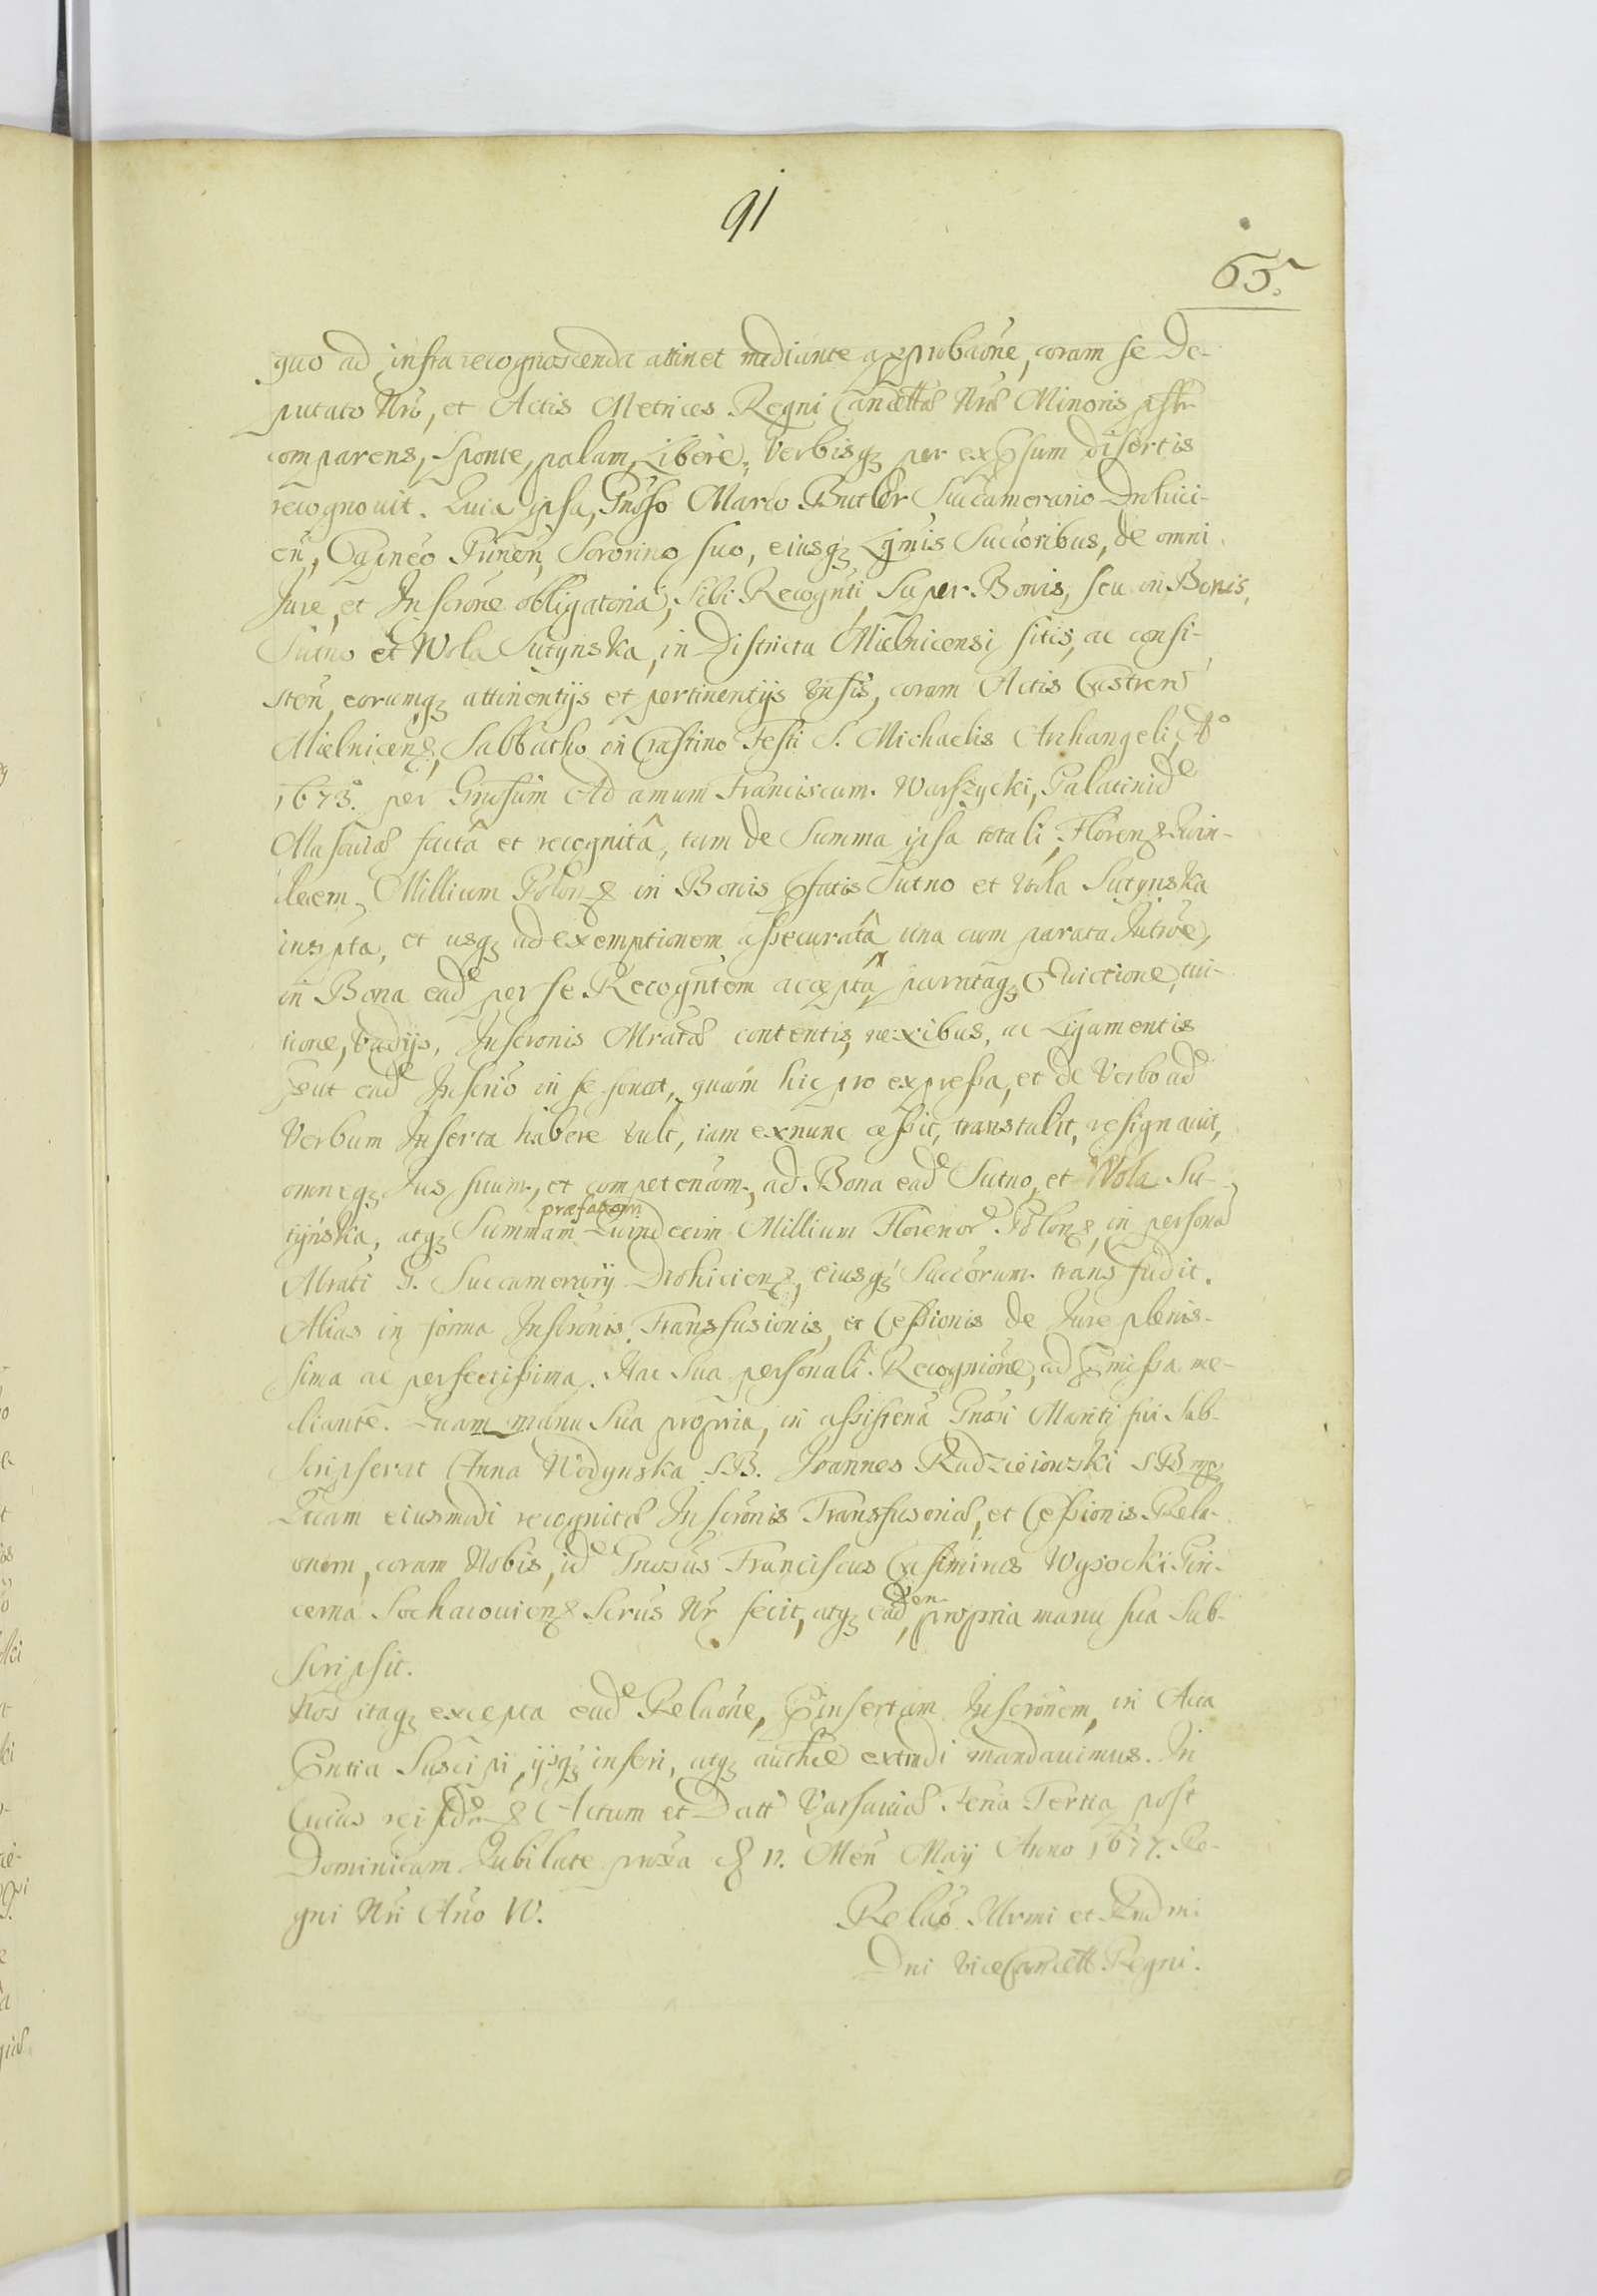 91
65.
quo ad infra recognoscenda attinet mediante approbaōne, coram se De-
putato Nrō, et Actis Metrices Regni Cancellae Nrae Minoris psltr
comparens, sponte, palam, Libere, Verbisq₃ per expssum disertis
recognouit. Quia ipsa, Gnoso Marco Butler Succamerario Drohici-
eñ, Capneo Prineñ, Sororino suo, eiusq₃ Lgmis Succoribus, de omni
Jure, et Inscrōne obligatoria, sibi Recognti, super Bonis, seu in Bonis,
Sutno et Wola Sutynska, in Districtu Mielnicensi sitis, ac consi-
steñ, eorumq₃ attinentijs et pertinentijs Vnsis, coram Actis Castren
Mielnicen, Sabbatho in Crastino Festi S. Michaelis Archangeli, Aº
1673. per Gnosum Adamum Franciscum Warszycki, Palatinidẽ
Masouiae factâ et recognitâ, tum de Summa ipsa totali, Floren Quin-
decem Millium Polon in Bonis pfatis Sutno et Wola Sutynska
inspta, et usq₃ ad exemptionem assecuratâ una cum parata Intrōe,
in Bona eadẽ per se Recogntem acceptâ, paritaq₃ Euictione, tui-
tione, vadijs, Inscronis Mratae contentis, nexibus, ac Ligamentis
put eadẽ Inscriō in se sonat, quam hic pro expressa, et de Verbo ad
Verbum Inserta habere vult, iam exnunc cessit, transtulit, resignauit,
omneq₃ Jus suum, et competenam, ad Bona eadẽ Sutno, et Wola Su-
tyńska, atq₃ Summam praefatam Quindecim Millium Floren Polon, in personã
Mrati G. Succamerarij Drohicien, eiusq₃ Succorum transfudit.
Alias in forma Inscronis Transfusionis, et Cessionis de Jure plenis-
sima ac perfectissima. Hac Sua personali Recogniōne, ad pmissa me-
diante. Quam manu Sua propria, in assistena Gnosi Mariti sui Sub-
scripserat Anna Wodynska SB. Joannes Radzieiowski SB mp
Quam eiusmodi recognitae Inscronis Transfusoriae, et Cessionis Rela-
onem, coram Nobis, idẽ Gnosus Franciscus Casimirus Wysocki Pin-
cerna Sochacouien Scrus Nr fecit, atq₃ eandẽ, propria manu sua Sub-
scripsit.
Nos itaq₃ excepta eadẽ Relaōne, pinsertam Inscronem, in Acta
pntia Suscipi, ijsq₃ inseri, atq₃ authce extradi mandauimus. In
Cuius rei fidẽ Actum et Datt Varsauiae Feria Tertia post
Dominicam Jubilate proxa 11. Meñ Maij Anno 1677. Re-
gni Nri Año IV.
Relaō Illrmi et Rndmi
Dni ViceCancell Regni.